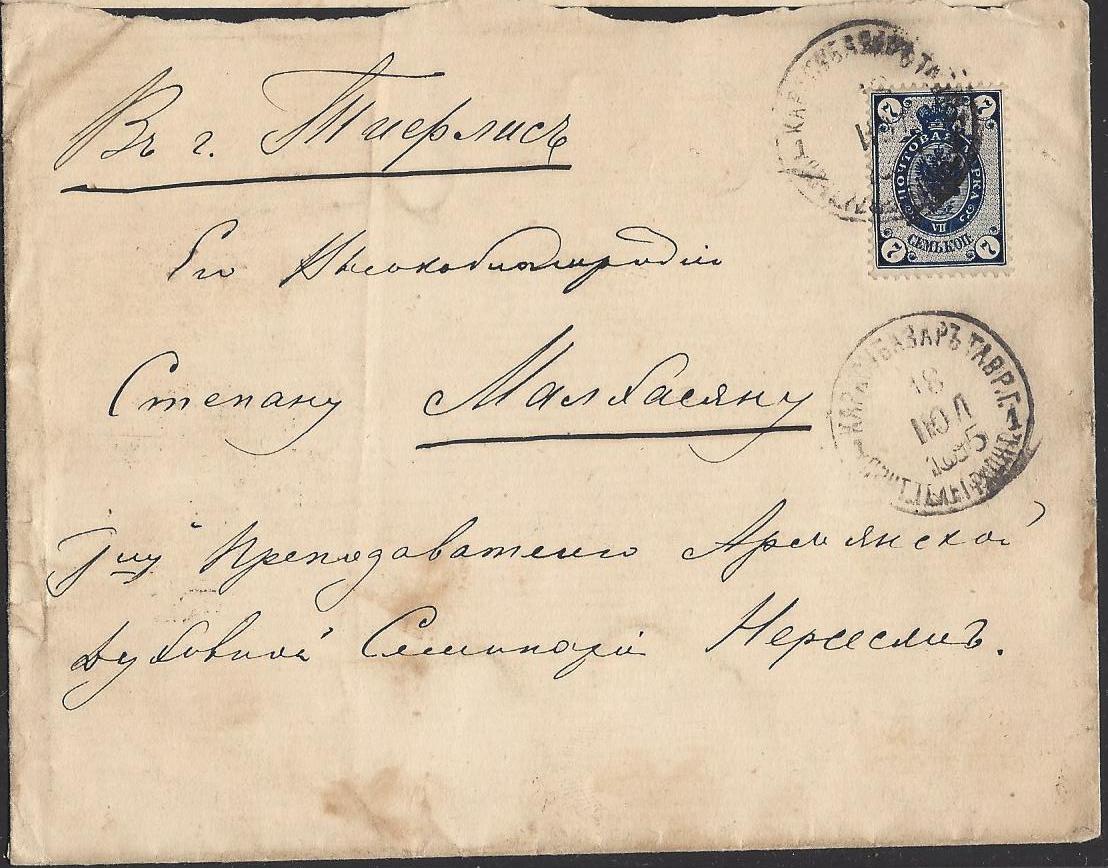 Въ г. Тифлисъ
Его Высокоблагородію
Степану Малхасяну
Г-ну Преподавателю Армянской
Духовной Семинаріи Нерсесянъ.
7 7
ПОЧТОВАЯ МАРКА
VII
СЕМЬ КОП.
7 7
КАРАСУБАЗАРЪ ТАВР. Г.
18
ІЮЛ
1895